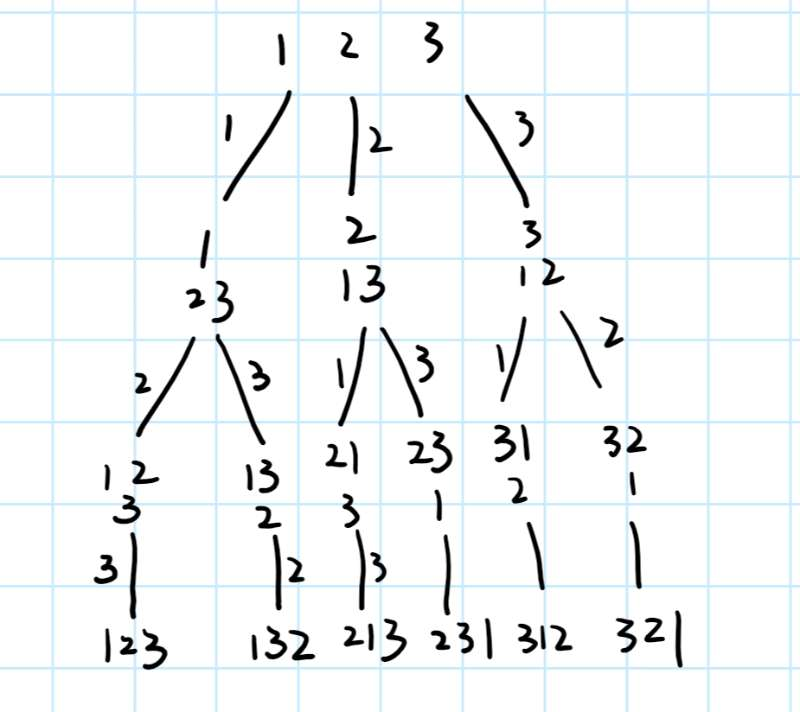 1 2 3
1 2 3
1 2 3
23 13 12
2 3 1 3 1 2
12 13 21 23 31 32
3 2 3 1 2 1
3 2 3
123 132 213 231 312 321